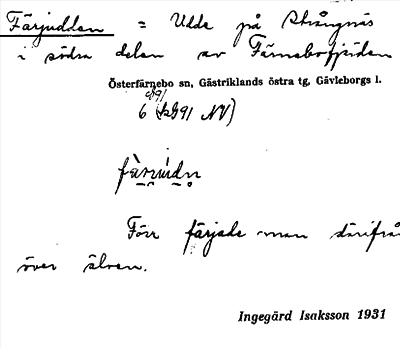 Färjudden = Udde på Strångnäs
i södra delen av Färnebofjärden
Österfärnebo sn, Gästriklands östra tg, Gävleborgs l.
6 91 NV)
Förr färjade man därifrå
över älven.
Ingegärd Isaksson 1931